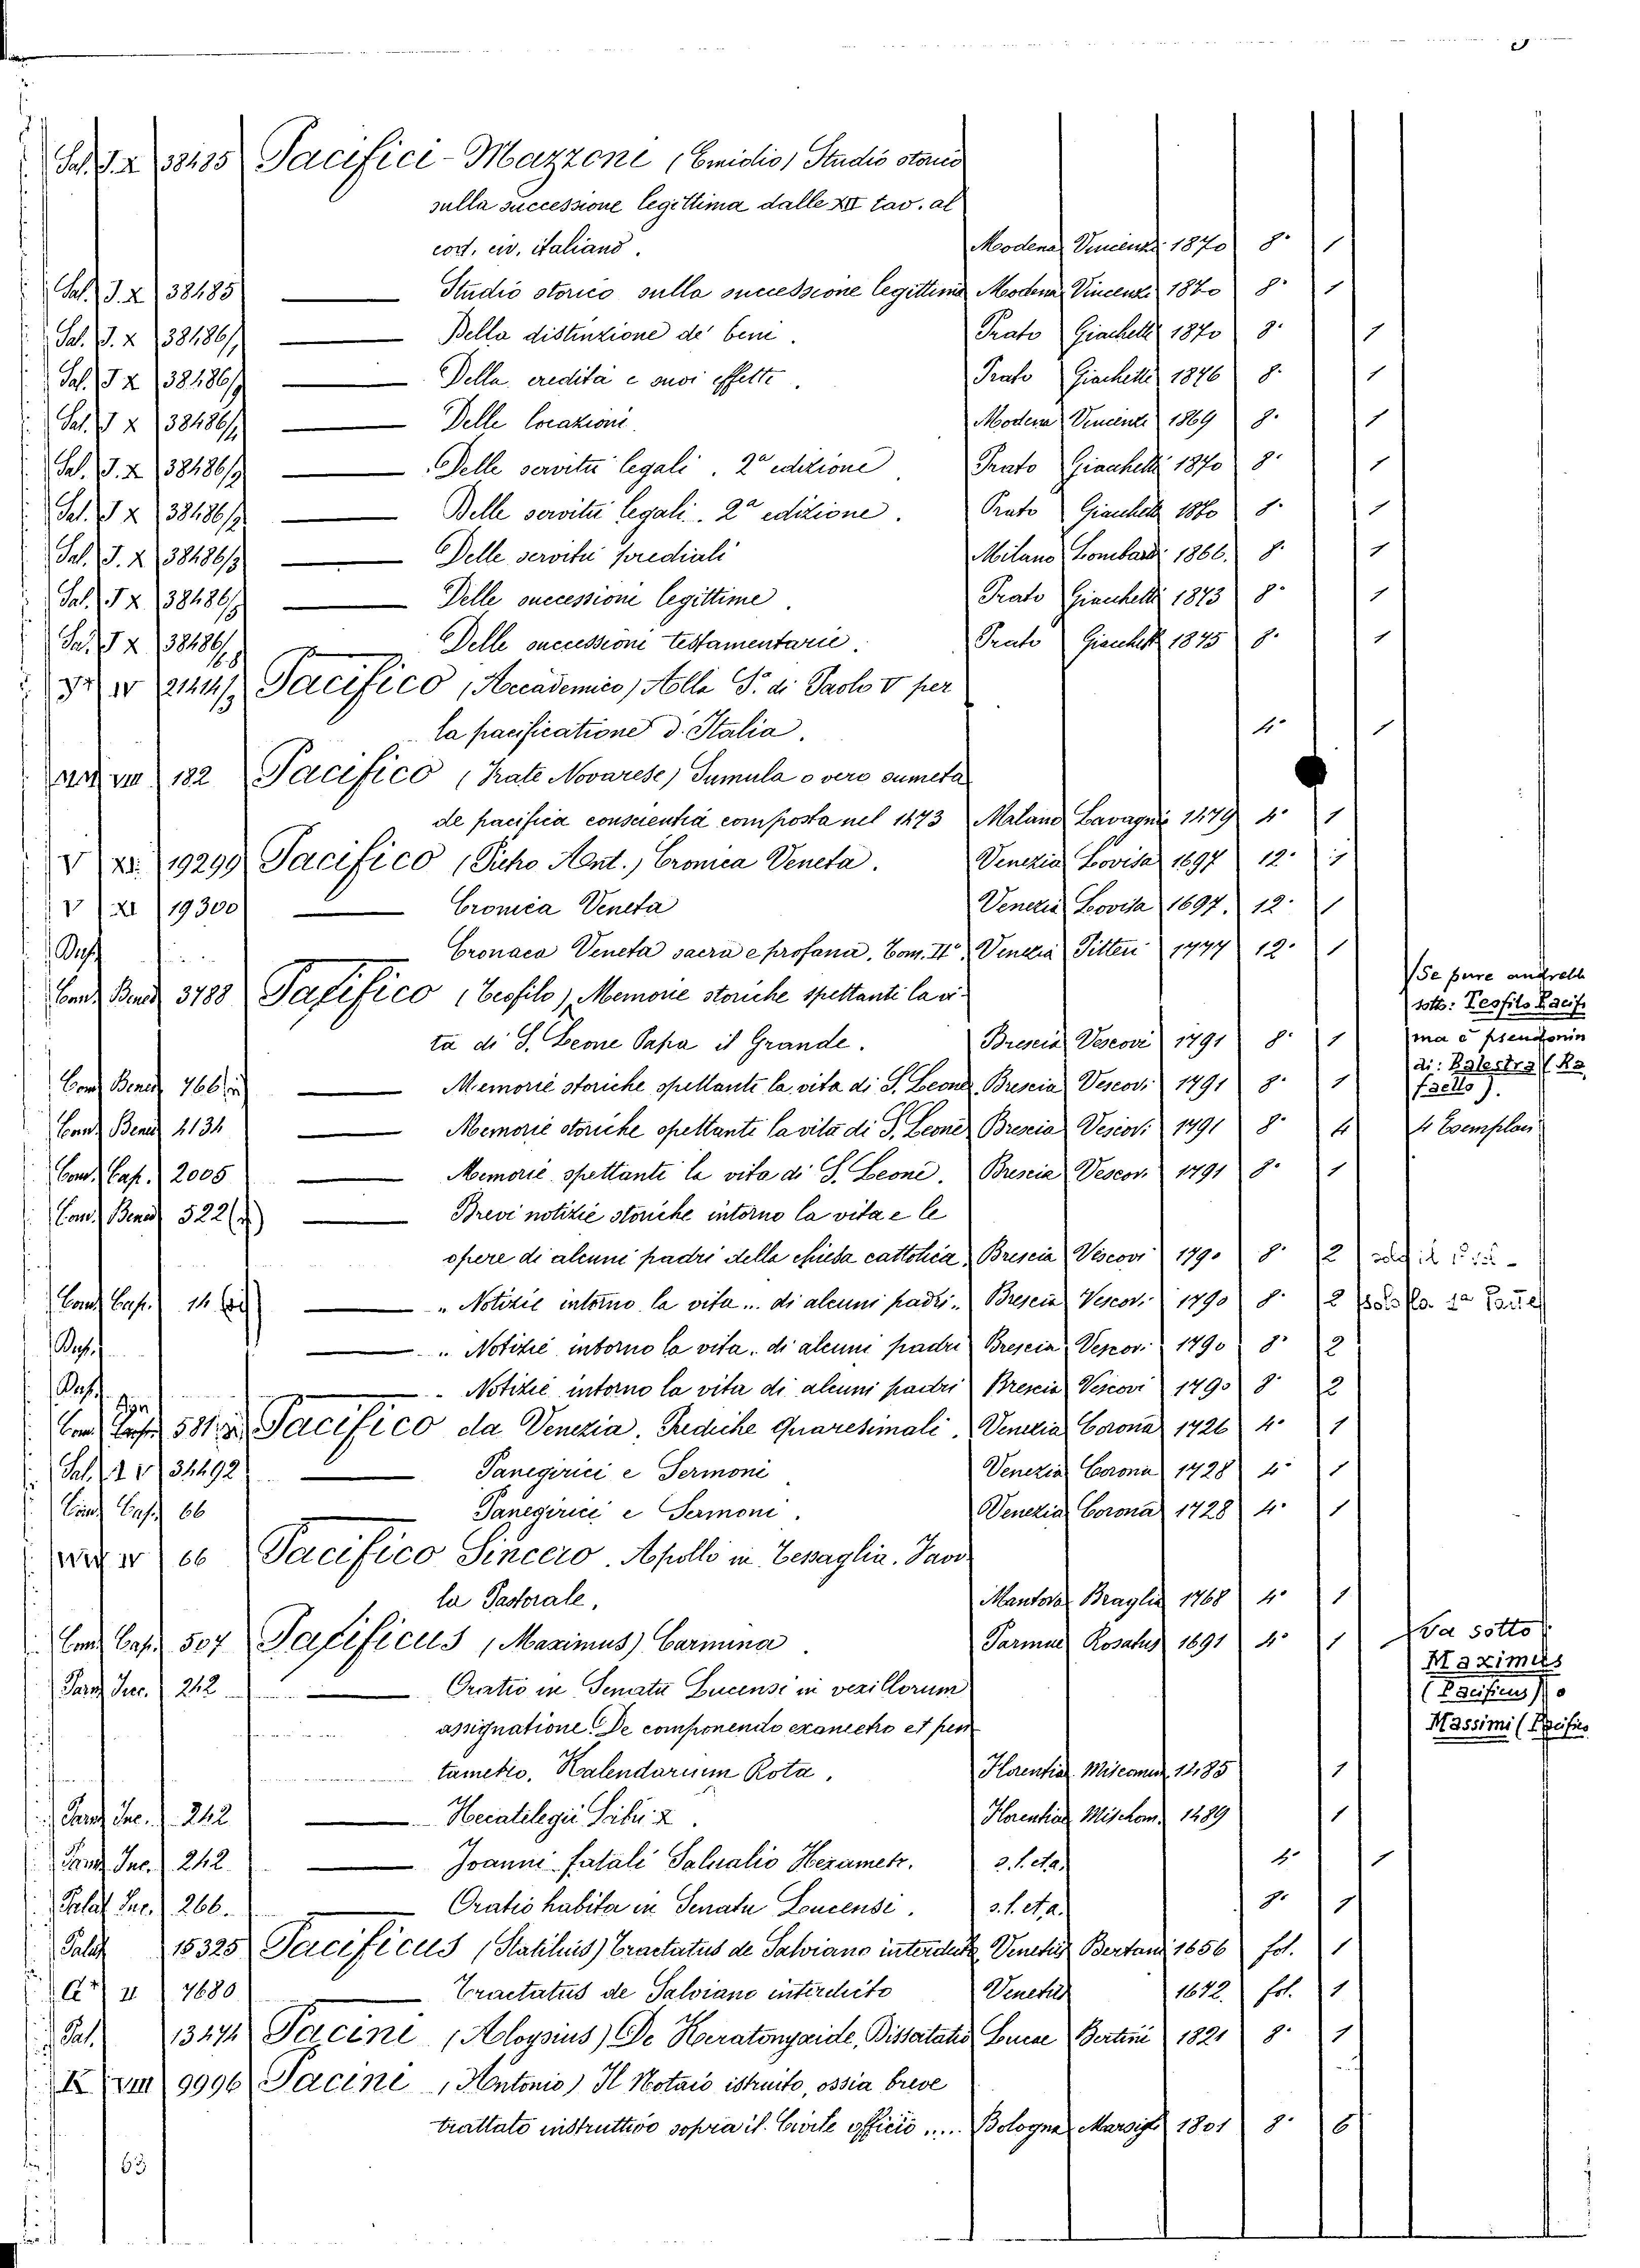 Sal. J. X 38485 Pacifici-Mazzoni (Emidio) Studio storico
sulla successione legittima dalle XII tav. al
cod. civ. italiano. Modena Vincenzi 1870 8° 1
Sal. J. X 38485 — Studio storico sulla successione legittima Modena Vincenzi 1870 8° 1
Sal. J. X 38486/ — Della distinzione de' beni. Prato Giachetti 1870 8° 1
Sal. J X 38486/ — Della eredità e suoi effetti. Prato Giachetti 1876 8° 1
Sal. J X 38486/ — Delle locazioni Modena Vincenzi 1869 8° 1
Sal. J. X 38486/ — Delle servitù legali. 2ª edizione Prato Giachetti 1870 8° 1
Sal. J X 38486/ — Delle servitù legali. 2ª edizione. Prato Giachetti 1870 8° 1
Sal. J. X 38486/3 — Delle servitù prediali Milano Lombardi 1866. 8° 1
Sal. J X 38486/ — Delle successioni legittime. Prato Giachetti 1873 8° 1
Sal. J X 38486/ — Delle successioni testamentarie. Prato Giachetti 1875 8° 1
IV Pacifico (Accademico) Alla S. di Paolo V per
la pacificatione d'Italia. 4° 1
VIII 182 Pacifico (Frate Novarese) Sumula o vero sumeta
de pacifica conscientia composta nel 1473 Milano Lavagnis 1479 4° 1
V XI. 19299 Pacifico (Picho Ant.) Cronica Veneta. Venezia Lovisa 1697 12° 1
V XI 19300 — Cronica Veneta Venezia Lovisa 1697. 12° 1
Cronaca Veneta sacra e profana. Tom. II° Venezia Pitteri 1777 12° 1
Com. Bened. 3788 Pacifico (Teofilo) Memorie storiche spettanti la vi-
ta di S. Leone Papa il Grande. Brescia Vescovi 1791 8° 1
Se pure andrebbe
sotto: Teofilo Pacif.
ma è pseudonimo
di: Balestra (Ra
faello).
Com. Bened. 766 — Memorie storiche spettanti la vita di S. Leone Brescia Vescovi 1791 8° 1
Com. Bened. 4134 — Memorie storiche spettanti la vita di S. Leone Brescia Vescovi 1791 8° 4 4 Esemplari
Com. Cap. 2005 — Memorie spettanti la vita di S. Leone. Brescia Vescovi 1791 8° 1
Com. Bened. 522 — Brevi notizie storiche intorno la vita e le
opere di alcuni padri della chiesa cattolica Brescia Vescovi 1790 8° 2
Com. Cap. 14 — „ Notizie intorno la vita... di alcuni padri.. Brescia Vescovi 1790 8° 2 solo la 1ª Parte
— „ Notizie intorno la vita.. di alcuni padri Brescia Vescovi 1790 8° 2
— „ Notizie intorno la vita di alcuni padri Brescia Vescovi 1790 8° 2
Com. 581 Pacifico da Venezia. Prediche Quaresimali. Venezia Corona 1726 4° 1
Sal. IV 34492 — Panegirici e Sermoni Venezia Corona 1728 4° 1
Com. Cap. 66 Panegirici e Sermoni. Venezia Corona 1728 4° 1
IV 66 Pacifico Sincero. Apollo in Tessaglia. Favo
la Pastorale. Mantova Braglia 1768 4° 1
Com. Cap. 507 Pacificus (Maximus) Carmina. Parmae Rosatus 1691 4° 1
Va sotto
Maximus
(Pacificus) o
Massimi (Pacifico
Inc. 242 — Oratio in Senatu Lucensi in vexillorum
assignatione. De componendo exametro et pen
tametro. Kalendarium Rota. Florentiae Miscomin. 1485 1
Inc. 242 — Hecatilegii Libri X. Florentiae Mischom. 1489 1
Inc. 242 — Joanni fatali Salvalio Hexametr. s. l. et a. 4° 1
Palat. Inc. 266. — Oratio habita in Senatu Loucensi. s. l. et a. 8° 1
Palat. 15325 Pacificus (Statilius) Tractatus de Salviano interdicto Venetiis Bertani 1656 fol. 1
II 7680 — Tractatus de Salviano interdicto Venetiis 1672. fol. 1
Pal. 13474 Pacini (Aloysius) De Keratonyxide. Dissertatio Lucae Bertini 1821 8° 1
K VIII 9996 Pacini (Antonio) Il Notaio istruito, ossia breve
trattato instruttivo sopra il Civile officio.... Bologna Marsigli 1801 8° 6
63